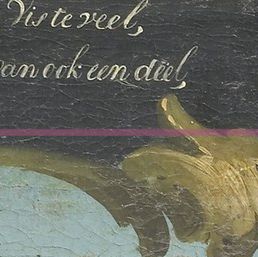 Vis te veel,
van ook een deel,